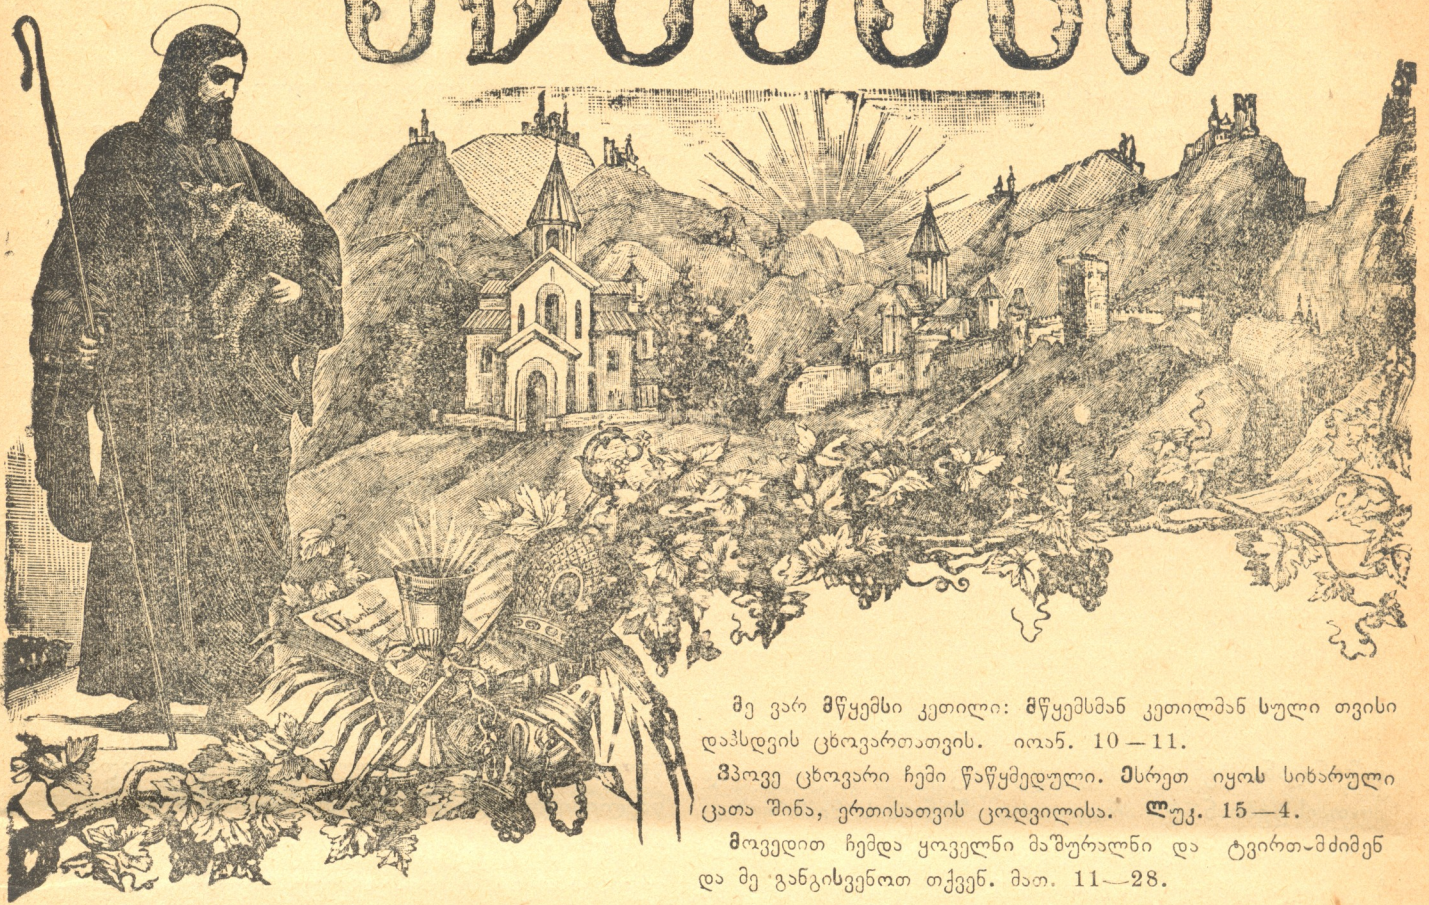 მე ვარ მწყემსი კეთილი: მწყემსმან კეთილმან სული თვისი
დაჰსდვის ცხოვართათვის. იოან. 10—11.
ვპოვე ცხოვარი ჩემი წაწყმედული. ესრეთ იყოს სიხარული
ცათა შინა, ერთისათვის ცოდვილისა. ლუკ. 15—4.
მოვედით ჩემდა ყოველნი მაშურალნი და ტვირთ-მძიმენ
და მე განგისვენოთ თქვენ. მათ. 11—28.